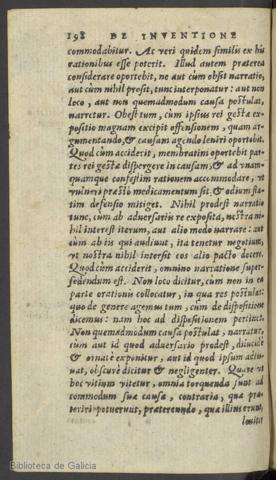 198 DE INVENTIONE
commodabitur. Ac veri quidem similis ex his
rationibus esse poterit. Illud autem præterea
considerare oportebit, ne aut cùm obsit narratio,
aut cùm nihil prosit, tunc interponatur: aut non
loco, aut non quemadmodum causa postulat,
narretur. Obest tum, cùm ipsius rei gestæ ex-
positio magnam excipit offensionem, quam ar-
gumentando, & causam agendo leniri oportebit.
Quod cùm acciderit, membratim oportebit par-
tes rei gestæ dispergere in causam, & ad unam-
quamque confestim rationem accommodare, vt
vulneri præstò medicamentum sit, & odium sta-
tim defensio mitiget. Nihil prodest narratio
tunc, cùm ab aduersariis re exposita, nostra ni-
hil interest iterum, aut alio modo narrare: aut
cùm ab iis qui audiunt, ita tenetur negotium,
vt nostra nihil intersit eos alio pacto docere.
Quod cùm acciderit, omnino narratione super-
sedendum est. Non loco dicitur, cùm non in ea
parte orationis collocatur, in qua res postulat:
quo de genere agemus tum, cùm de dispositione
dicemus: nam hoc ad dispositionem pertinet.
Non quemadmodum causa postulat, narratur,
cùm aut id quod aduersario prodest, dilucidè
& ornatè exponitur, aut id quod ipsum adiu-
uat, obscurè dicitur & negligenter. Quare vt
hoc vitium vitetur, omnia torquenda sunt ad
commodum suæ causæ, contraria, quæ præ-
teriri potuerunt, prætereundo, quæ illius erunt,
leuiter
Biblioteca de Galicia